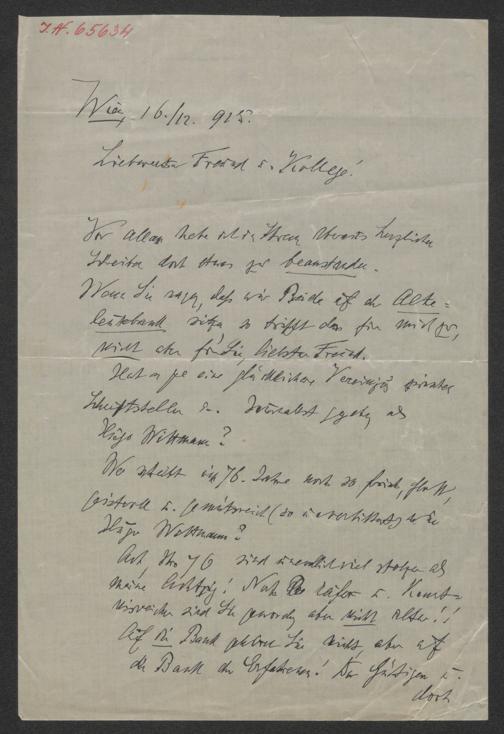 I.N. 65634
Wien, 16./12. 915.
Liebwerter Freund u. Kollege!
Vor allem habe ich in Ihrem überaus herzlichen
Schreiben doch etwas zu beanstanden.
Wenn Sie sagen, daß wir Beide auf der Alte=
leutebank sitzen so trifft das für mich zu,
nicht aber für Sie, liebster Freund.
Hat es je eine glücklichere Vereinigung zwischen
Schriftsteller u. Journalist gegeben als
Hugo Wittmann?
Wer schreibt im 76. Jahre noch so frisch, flott,
geistvoll u. gemütreich (so unverbittert) wie
Hugo Wittmann?
Ach, Ihre 76 sind unendlich viel stolzer als
meine Achtzig! Nur reifer u. Kennt=
nisreicher sind Sie geworden aber nicht älter!!
Auf die Bank gehören Sie nicht, aber auf
die Bank der Erfahrenen! Der Gütigen u.
doch